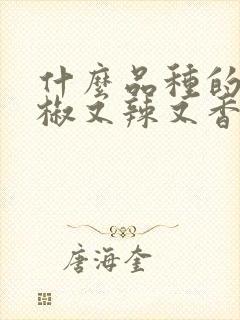 什麼品種的
椒又辣又香
唐海奎